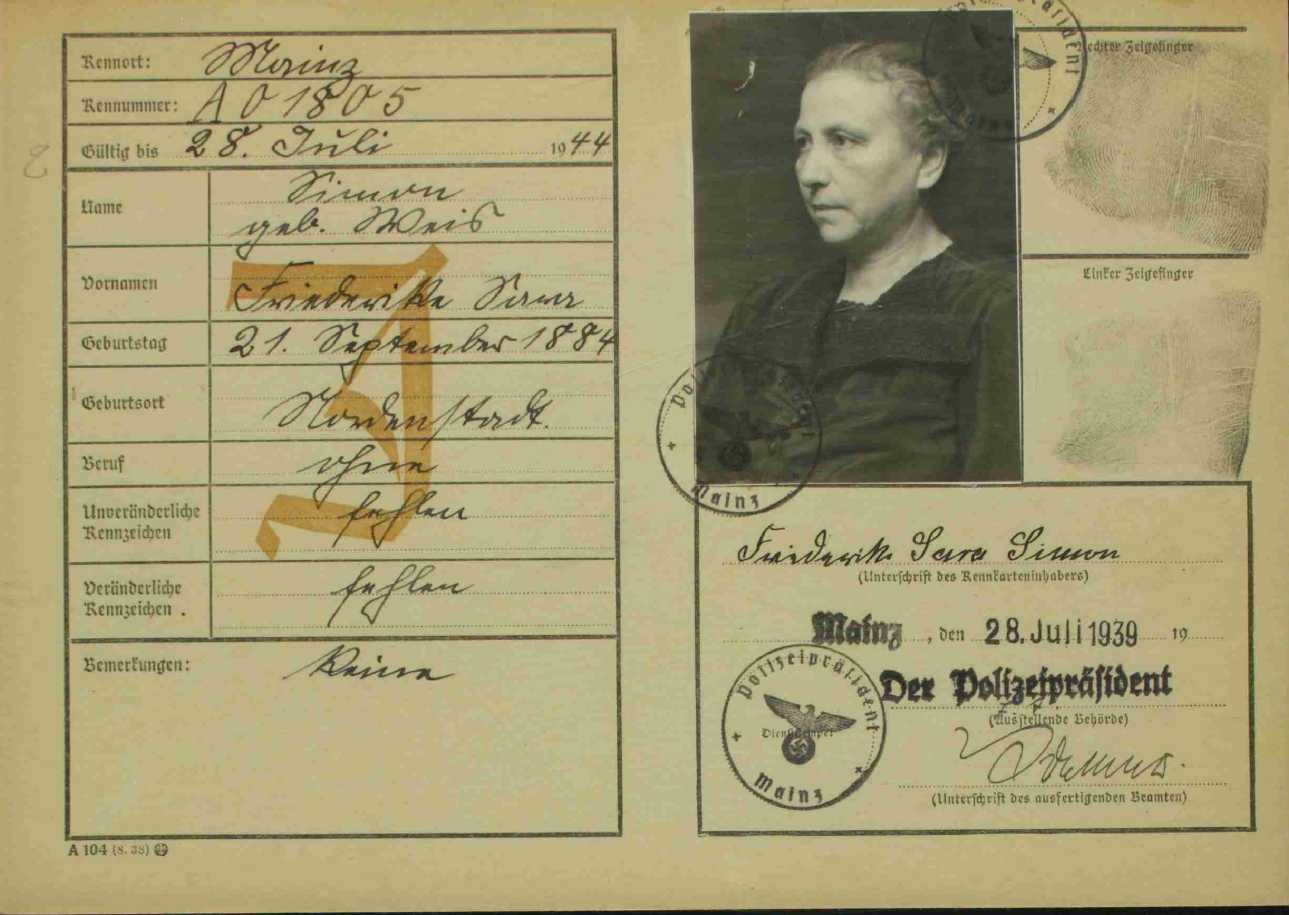 Kennort: Mainz
Kennummer: A 01805
Gültig bis 28. Juli 1944
Name Simon
geb. Weis
Vornamen Friederike Sara
Geburtstag 21. September 1884
Geburtsort Nordenstadt.
Beruf ohne
Unveränderliche
Kennzeichen fehlen
Veränderliche
Kennzeichen . fehlen
Bemerkungen: Keine
J
A 104 (8. 38)
Rechter Zeigefinger
Linker Zeigefinger
Polizeipräsident
Mainz
Friederike Sara Simon
(Unterschrift des Kennkarteninhabers)
Mainz, den 28. Juli 1939 19
Polizeipräsident
Dienststempel
Mainz
Der Polizeipräsident
(Ausstellende Behörde)
(Unterschrift des ausfertigenden Beamten)